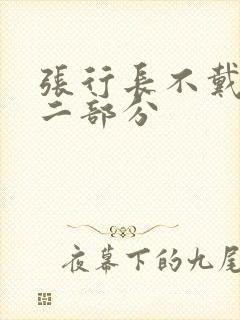 張行長不戴
二部分
夜幕下的九尾